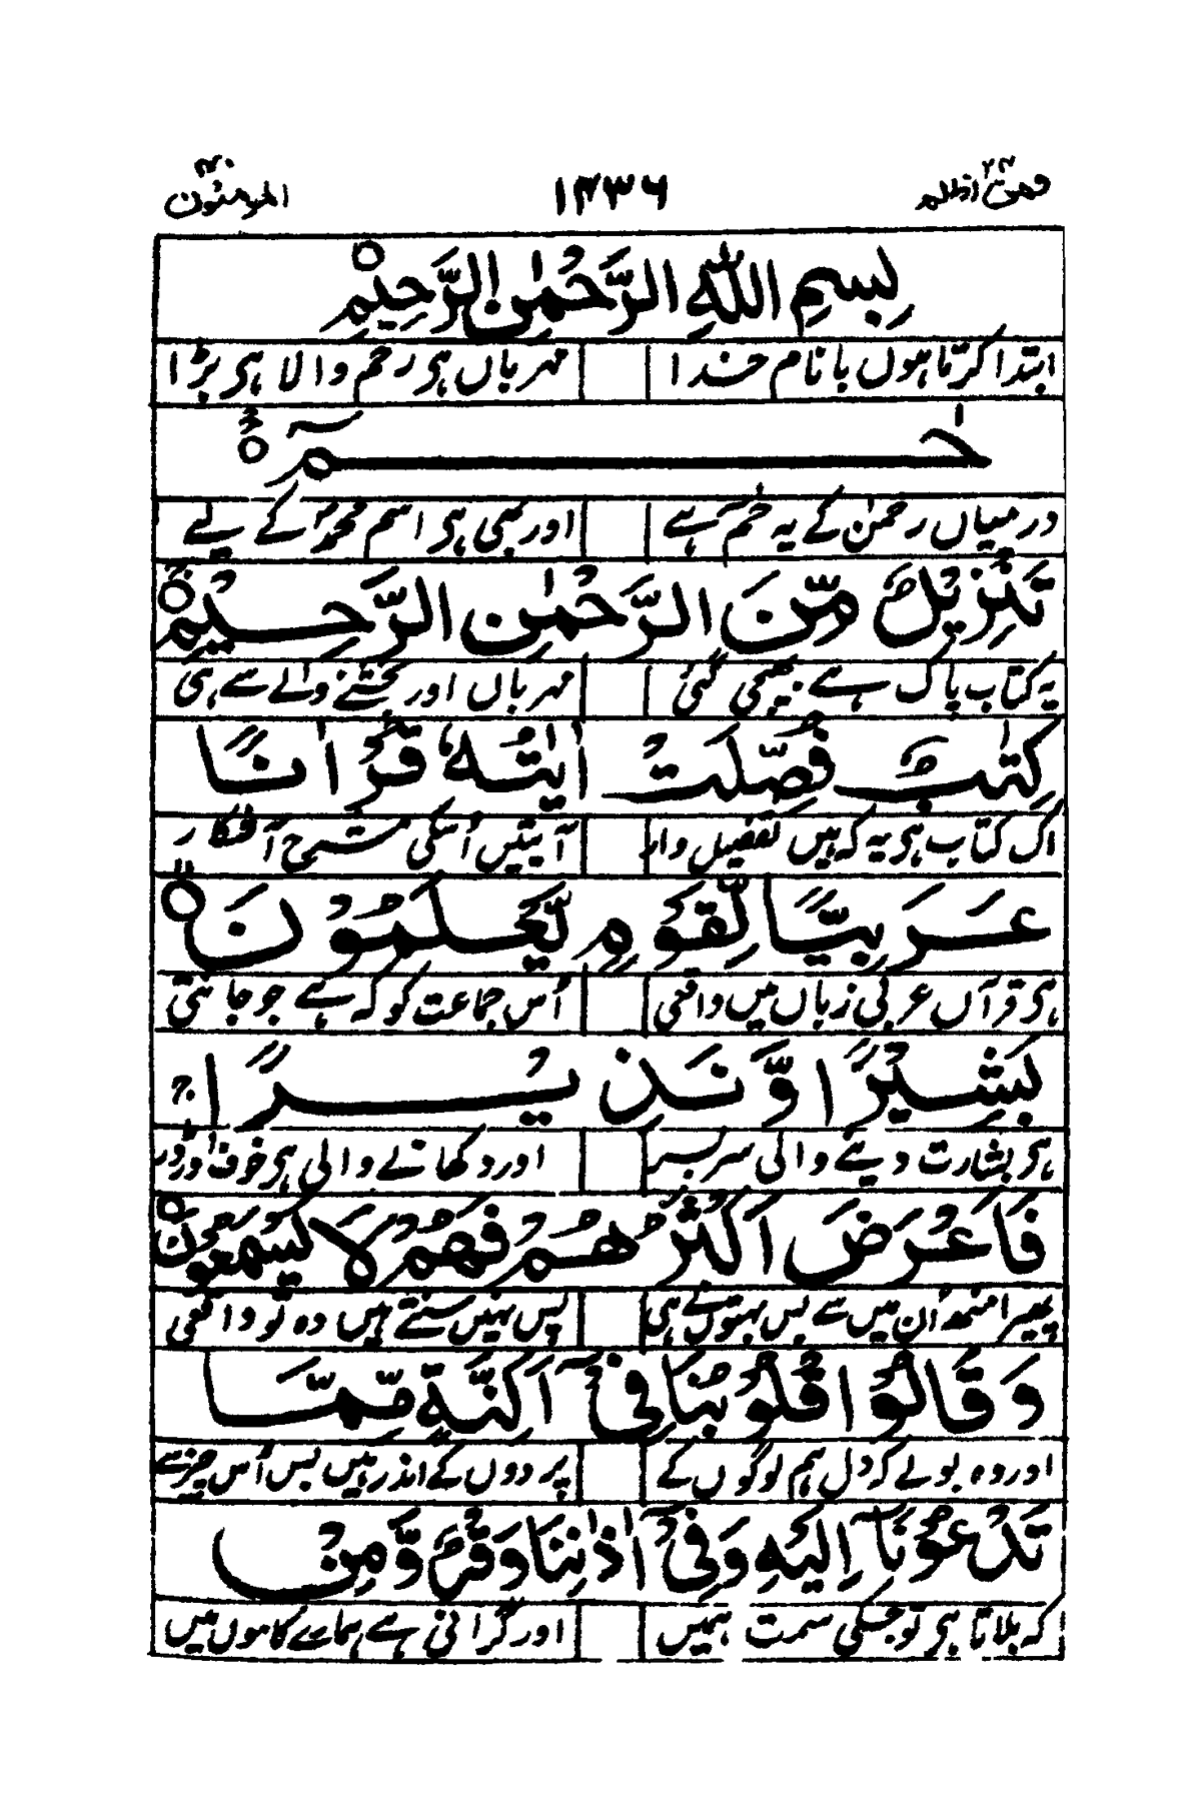 فمن اظلم ۲۴ ۱۴۳۶ المؤمنون ۴۰
بِسْمِ اللّٰهِ الرَّحْمٰنِ الرَّحِيْمِ ○
ابتدا کرتا ہوں با نام خدا مہرباں ہی رحم والا ہی بڑا
حٰـمٓ ○
درمیاں رحمٰن کے یہ حٰمٓ ہے اور کبھی ہی اسم محمدؐ کے لیے
تَنْزِيْلٌ مِّنَ الرَّحْمٰنِ الرَّحِيْمِ ○
یہ کتاب پاک ہے بھیجی گئی مہرباں اور بخشنے والے سے ہی
كِتٰبٌ فُصِّلَتْ اٰيٰتُهٗ قُرْاٰنًا
اک کتاب ہی یہ کہ ہیں تفصیل وار آیتیں اُسکی مشرح آشکار
عَرَبِيًّا لِّقَوْمٍ يَّعْلَمُوْنَ ○
ہی قرآں عربی زباں میں واقعی اُس جماعت کو کہ ہے جو جانتی
بَشِيْرًا وَّنَذِيْرًا ۚ
ہی بشارت دینے والی سربسر اور دکھانے والی ہی خوف و ڈر
فَاَعْرَضَ اَكْثَرُهُمْ فَهُمْ لَا يَسْمَعُوْنَ ○
پھیرا منھ اُن میں سے بس بہتوں نے ہی پس نہیں سنتے ہیں وہ تو واقعی
وَقَالُوْا قُلُوْبُنَا فِيْٓ اَكِنَّةٍ مِّمَّا
اور وہ بولے کہ دل ہم لوگوں کے پردوں کے اندر ہیں بس اُس چیز سے
تَدْعُوْنَآ اِلَيْهِ وَفِيْٓ اٰذَانِنَا وَقْرٌ وَّمِنْۢ
کہ بلاتا ہی تو جسکی سمت ہمیں اور گرانی ہے ہمارے کانوں میں